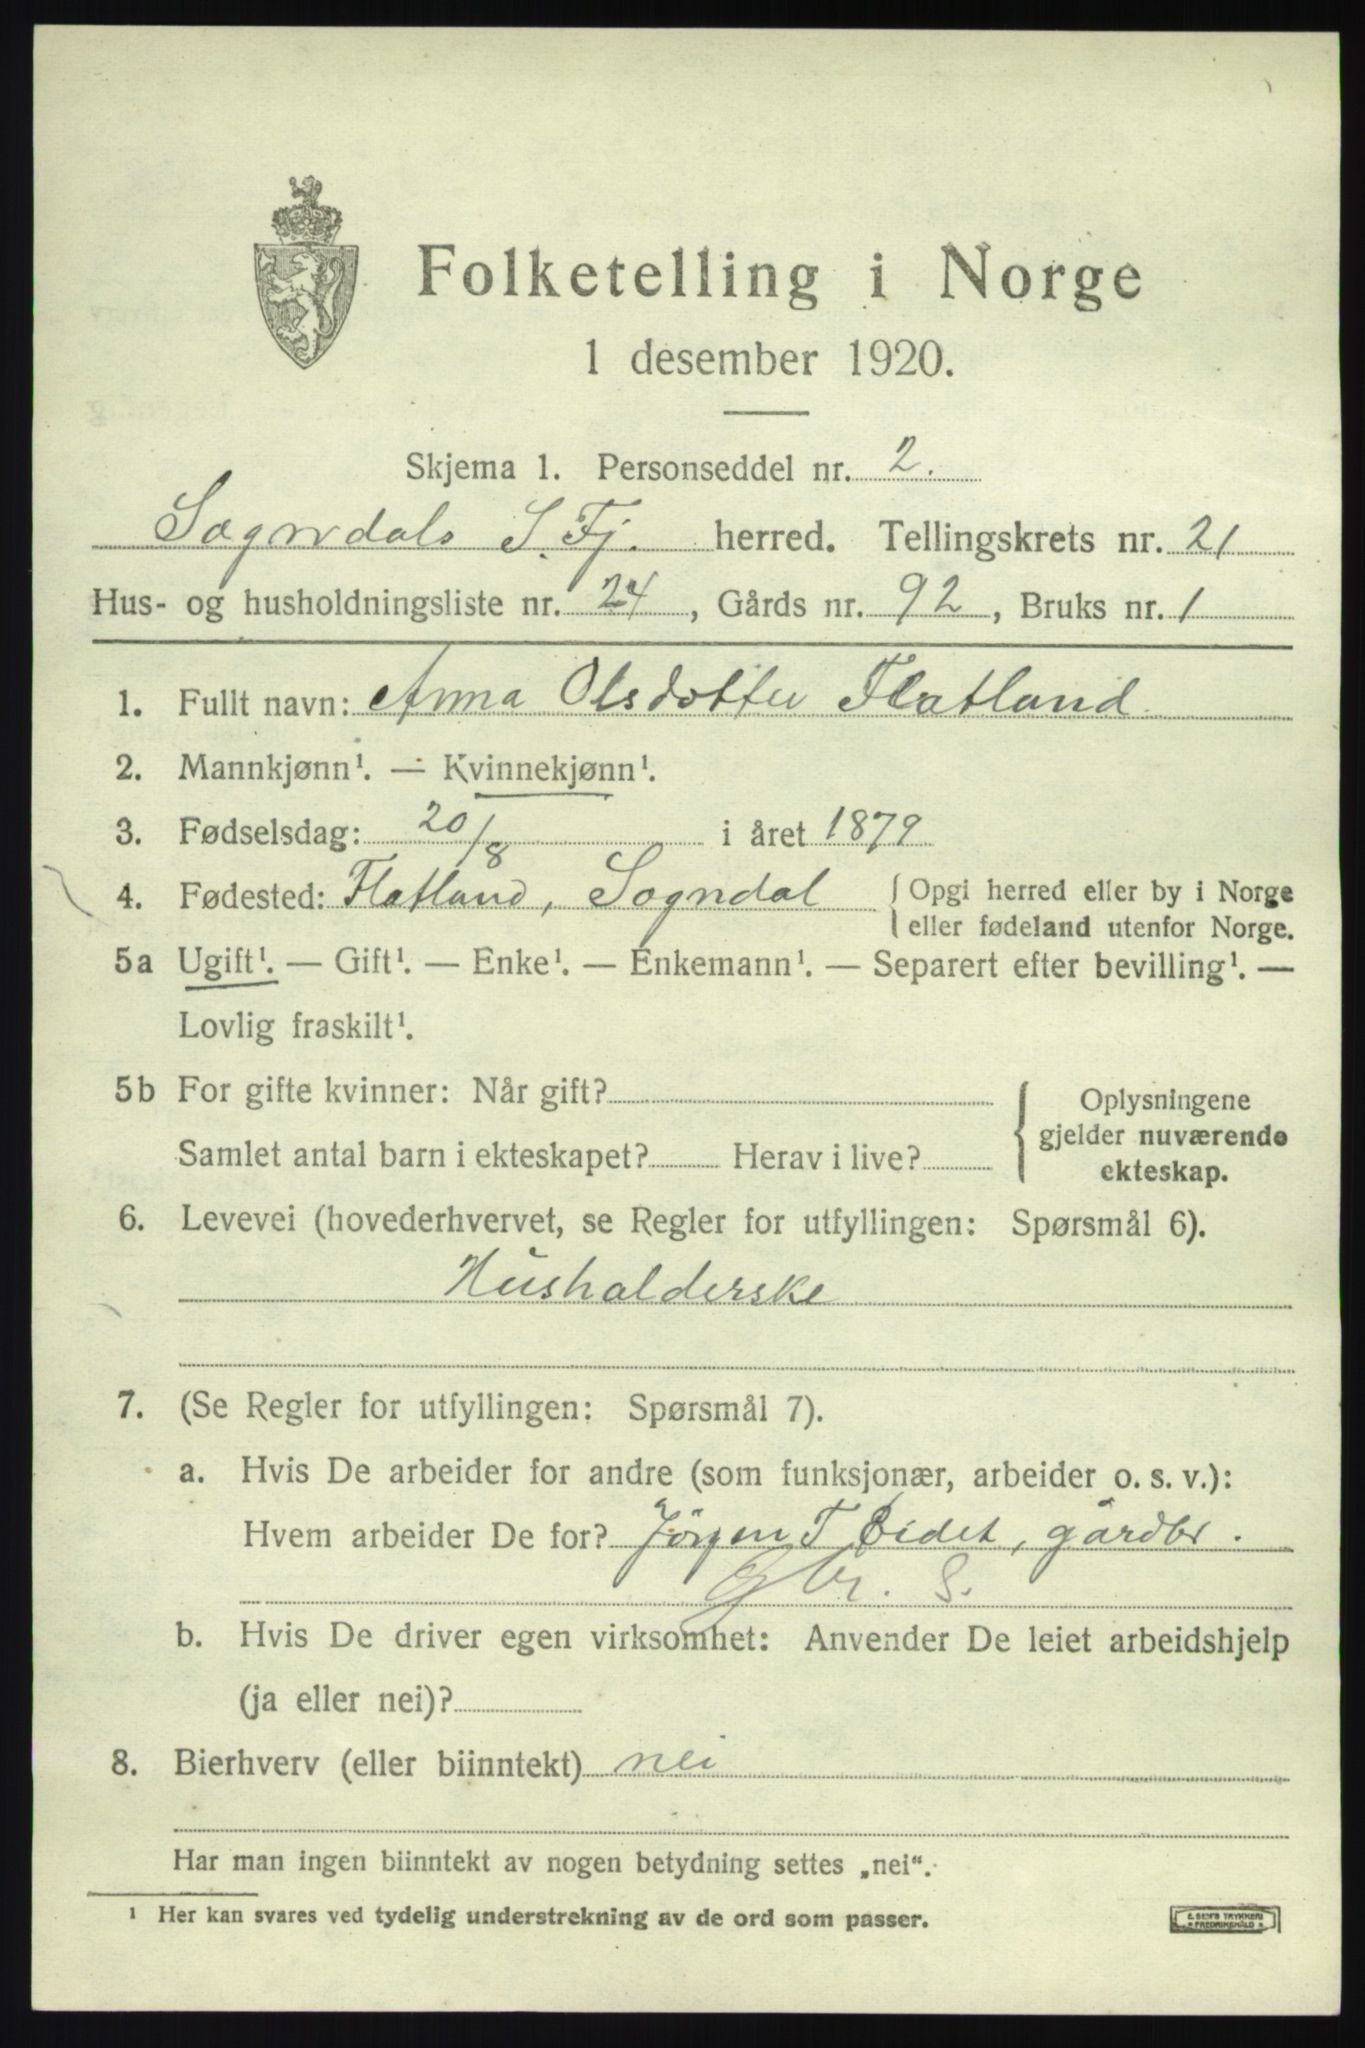 Folketelling i Norge
1 desember 1920.
Skjema 1. Personseddel nr. 2.
Sogndals S. Fj. herred. Tellingskrets nr. 21
Hus- og husholdningsliste nr. 24, Gårds nr. 92, Bruks nr. 1
1. Fullt navn: Anna Olsdotter Flatland
2. Mannkjønn¹. — Kvinnekjønn¹.
3. Fødselsdag: 20/8 i året 1879
4. Fødested: Flatland, Sogndal { Opgi herred eller by i Norge
eller fødeland utenfor Norge.
5a Ugift¹. — Gift¹. — Enke¹. — Enkemann¹. — Separert efter bevilling¹. —
Lovlig fraskilt¹.
5b For gifte kvinner: Når gift?
Samlet antal barn i ekteskapet? Herav i live?
{ Oplysningene
gjelder nuværende
ekteskap.
6. Levevei (hovederhvervet, se Regler for utfyllingen: Spørsmål 6).
Husholderske
7. (Se Regler for utfyllingen: Spørsmål 7).
a. Hvis De arbeider for andre (som funksjonær, arbeider o. s. v.):
Hvem arbeider De for? Jørgen T Eidet, gårdbr.
Gbr. S.
b. Hvis De driver egen virksomhet: Anvender De leiet arbeidshjelp
(ja eller nei)?
8. Bierhverv (eller biinntekt) nei
Har man ingen biinntekt av nogen betydning settes „nei“.
¹ Her kan svares ved tydelig understrekning av de ord som passer.